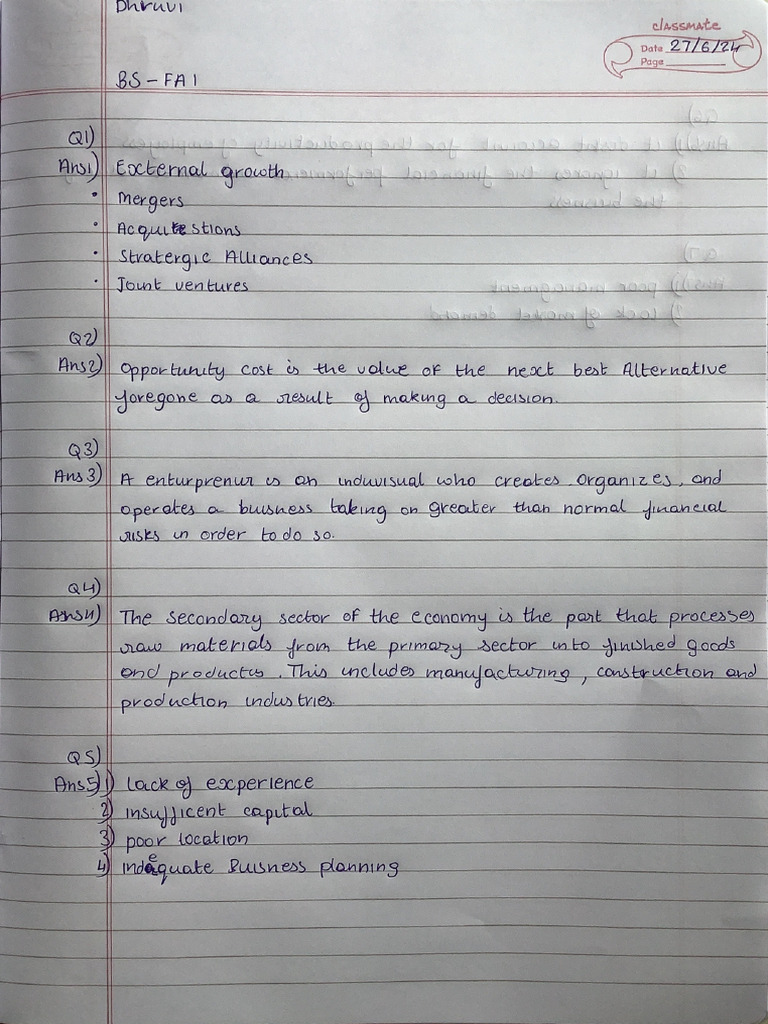 Dhruvi
classmate
Date 27/6/24
Page
BS-FA1
Q1)
Ans1) External growth
• Mergers
• Acquistions
• Stratergic Alliances
• Joint ventures
Q2)
Ans2) Opportunity cost is the value of the next best Alternative
foregone as a result of making a decision.
Q3)
Ans3) A enturprenur is an induvisual who creates organizes, and
operates a buisness taking on greater than normal financial
risks in order to do so.
Q4)
Ans4) The secondary sector of the economy is the part that processes
raw materials from the primary sector into finished goods
and products. This includes manufacturing, construction and
production industries.
Q5)
Ans5) 1) lack of experience
2) insufficent capital
3) poor location
4) indequate Buisness planning